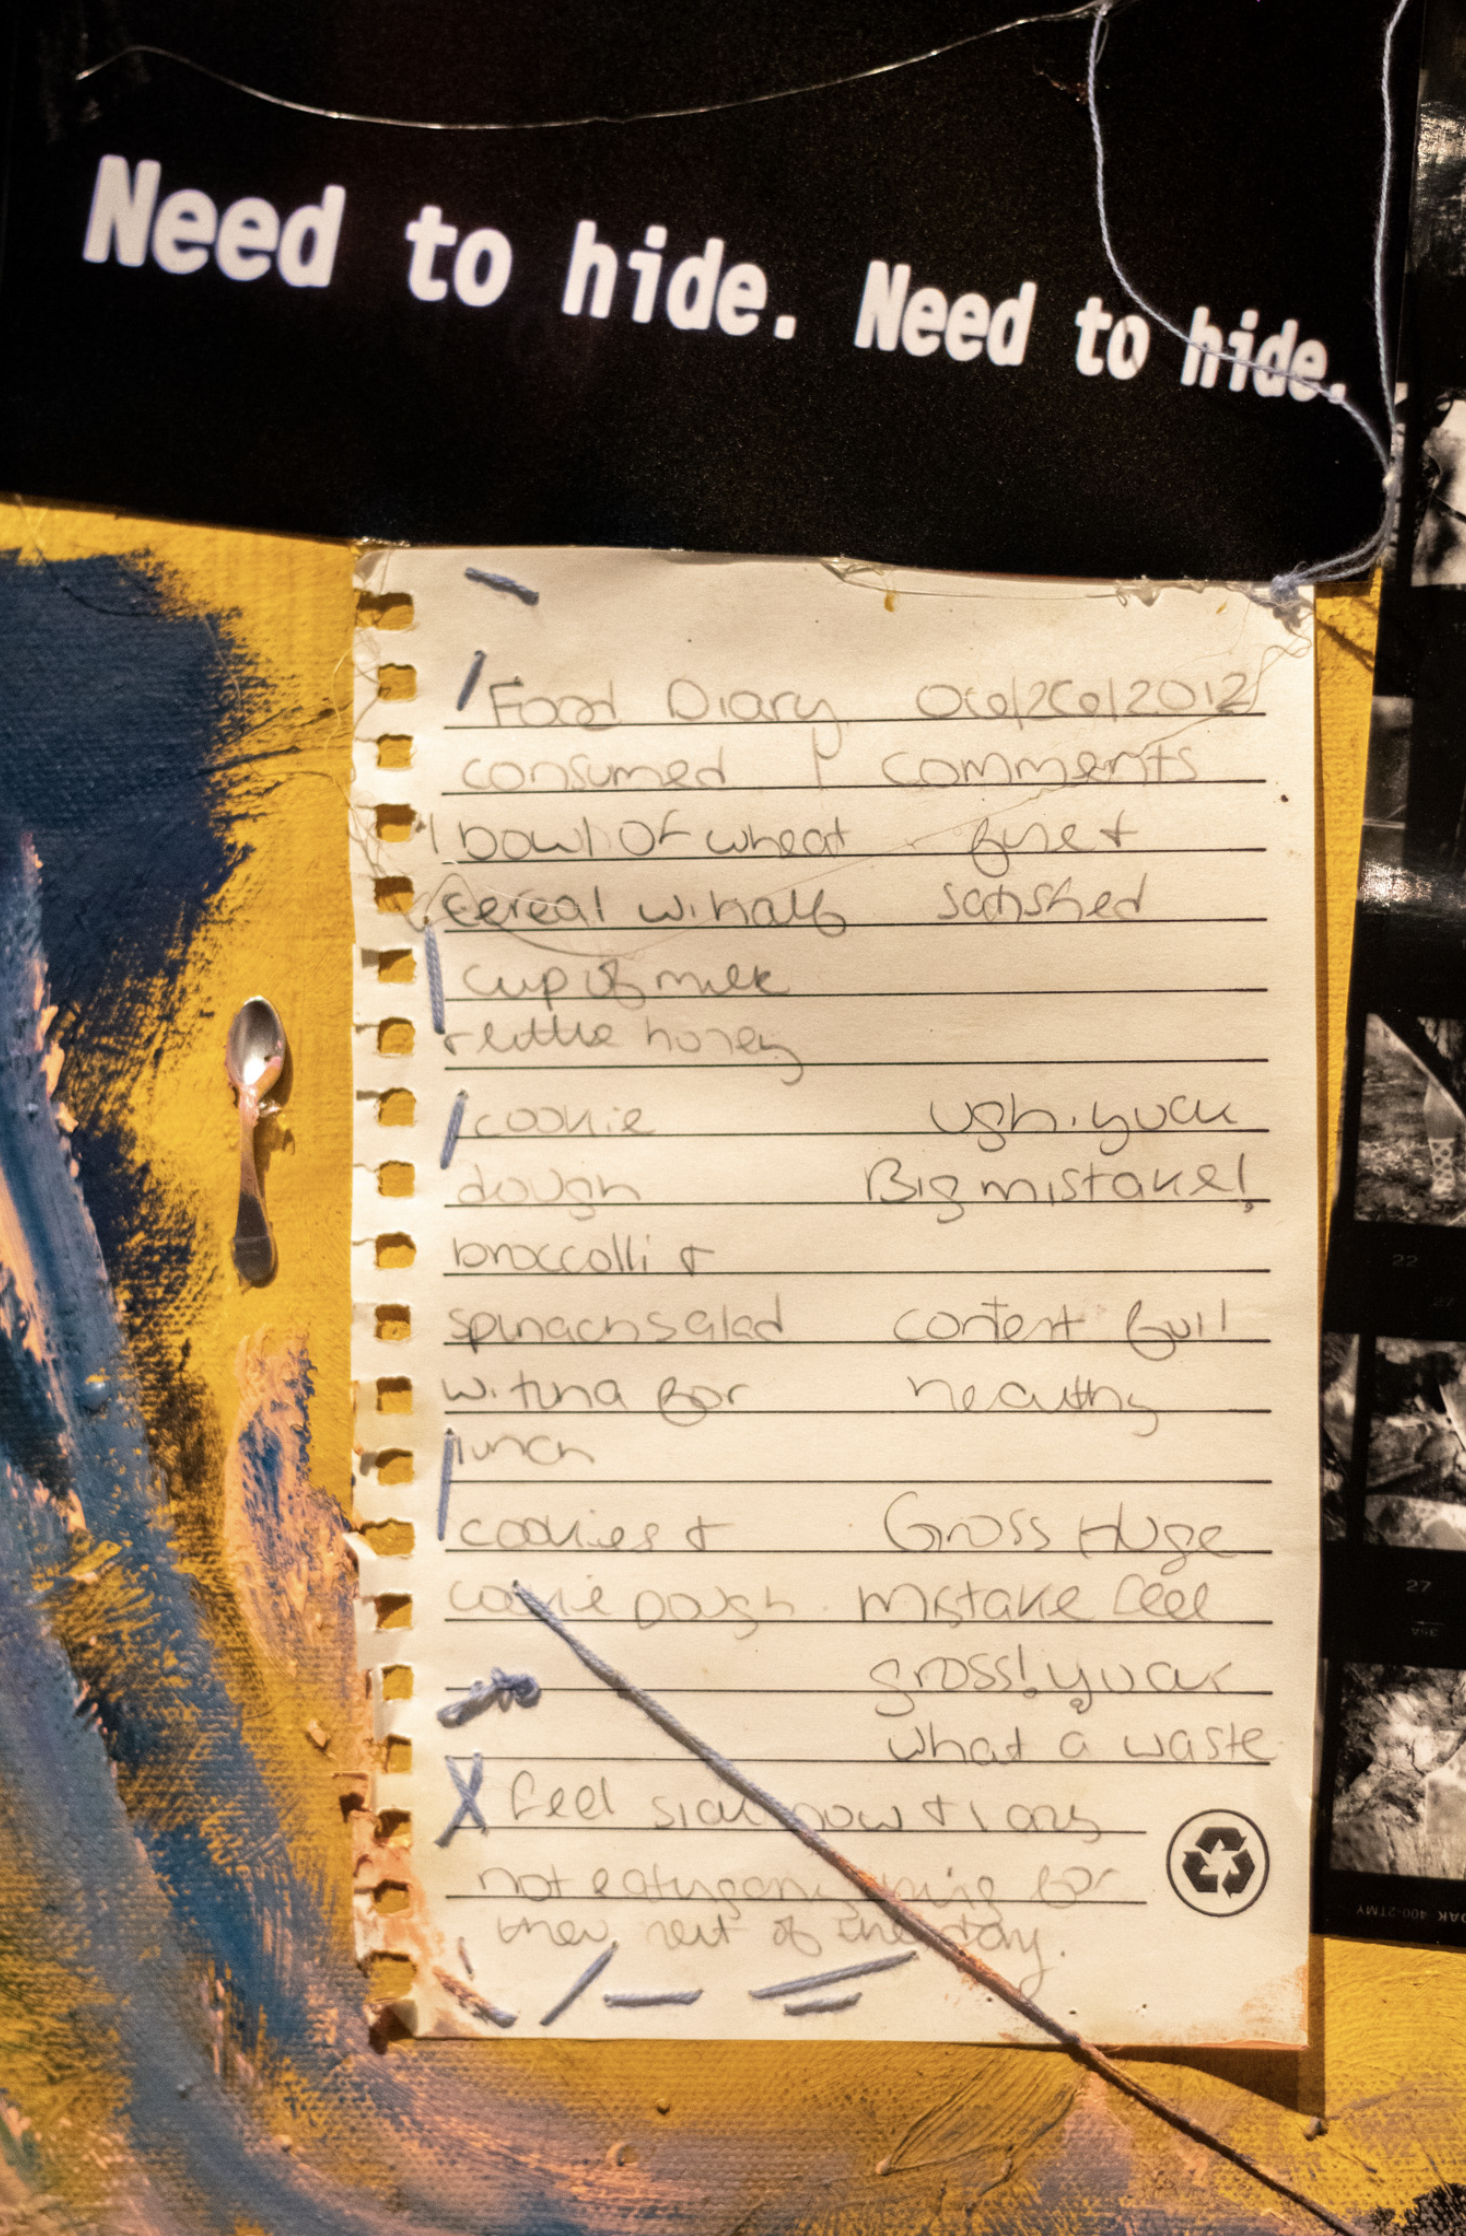 Need to hide. Need to hide.
Food Diary 06/26/2012
consumed | comments
1 bowl of wheat fine +
cereal w. half satisfied
cup of milk
+ little honey
cookie ugh. yuck
dough Big mistake!
broccolli +
spinach salad content full
w. tuna for healthy
lunch
cookies + Gross Huge
cookie Dough. mistake feel
gross! yuck
what a waste
feel sick now +
not eating anything for
the rest of the day.
22
27
27